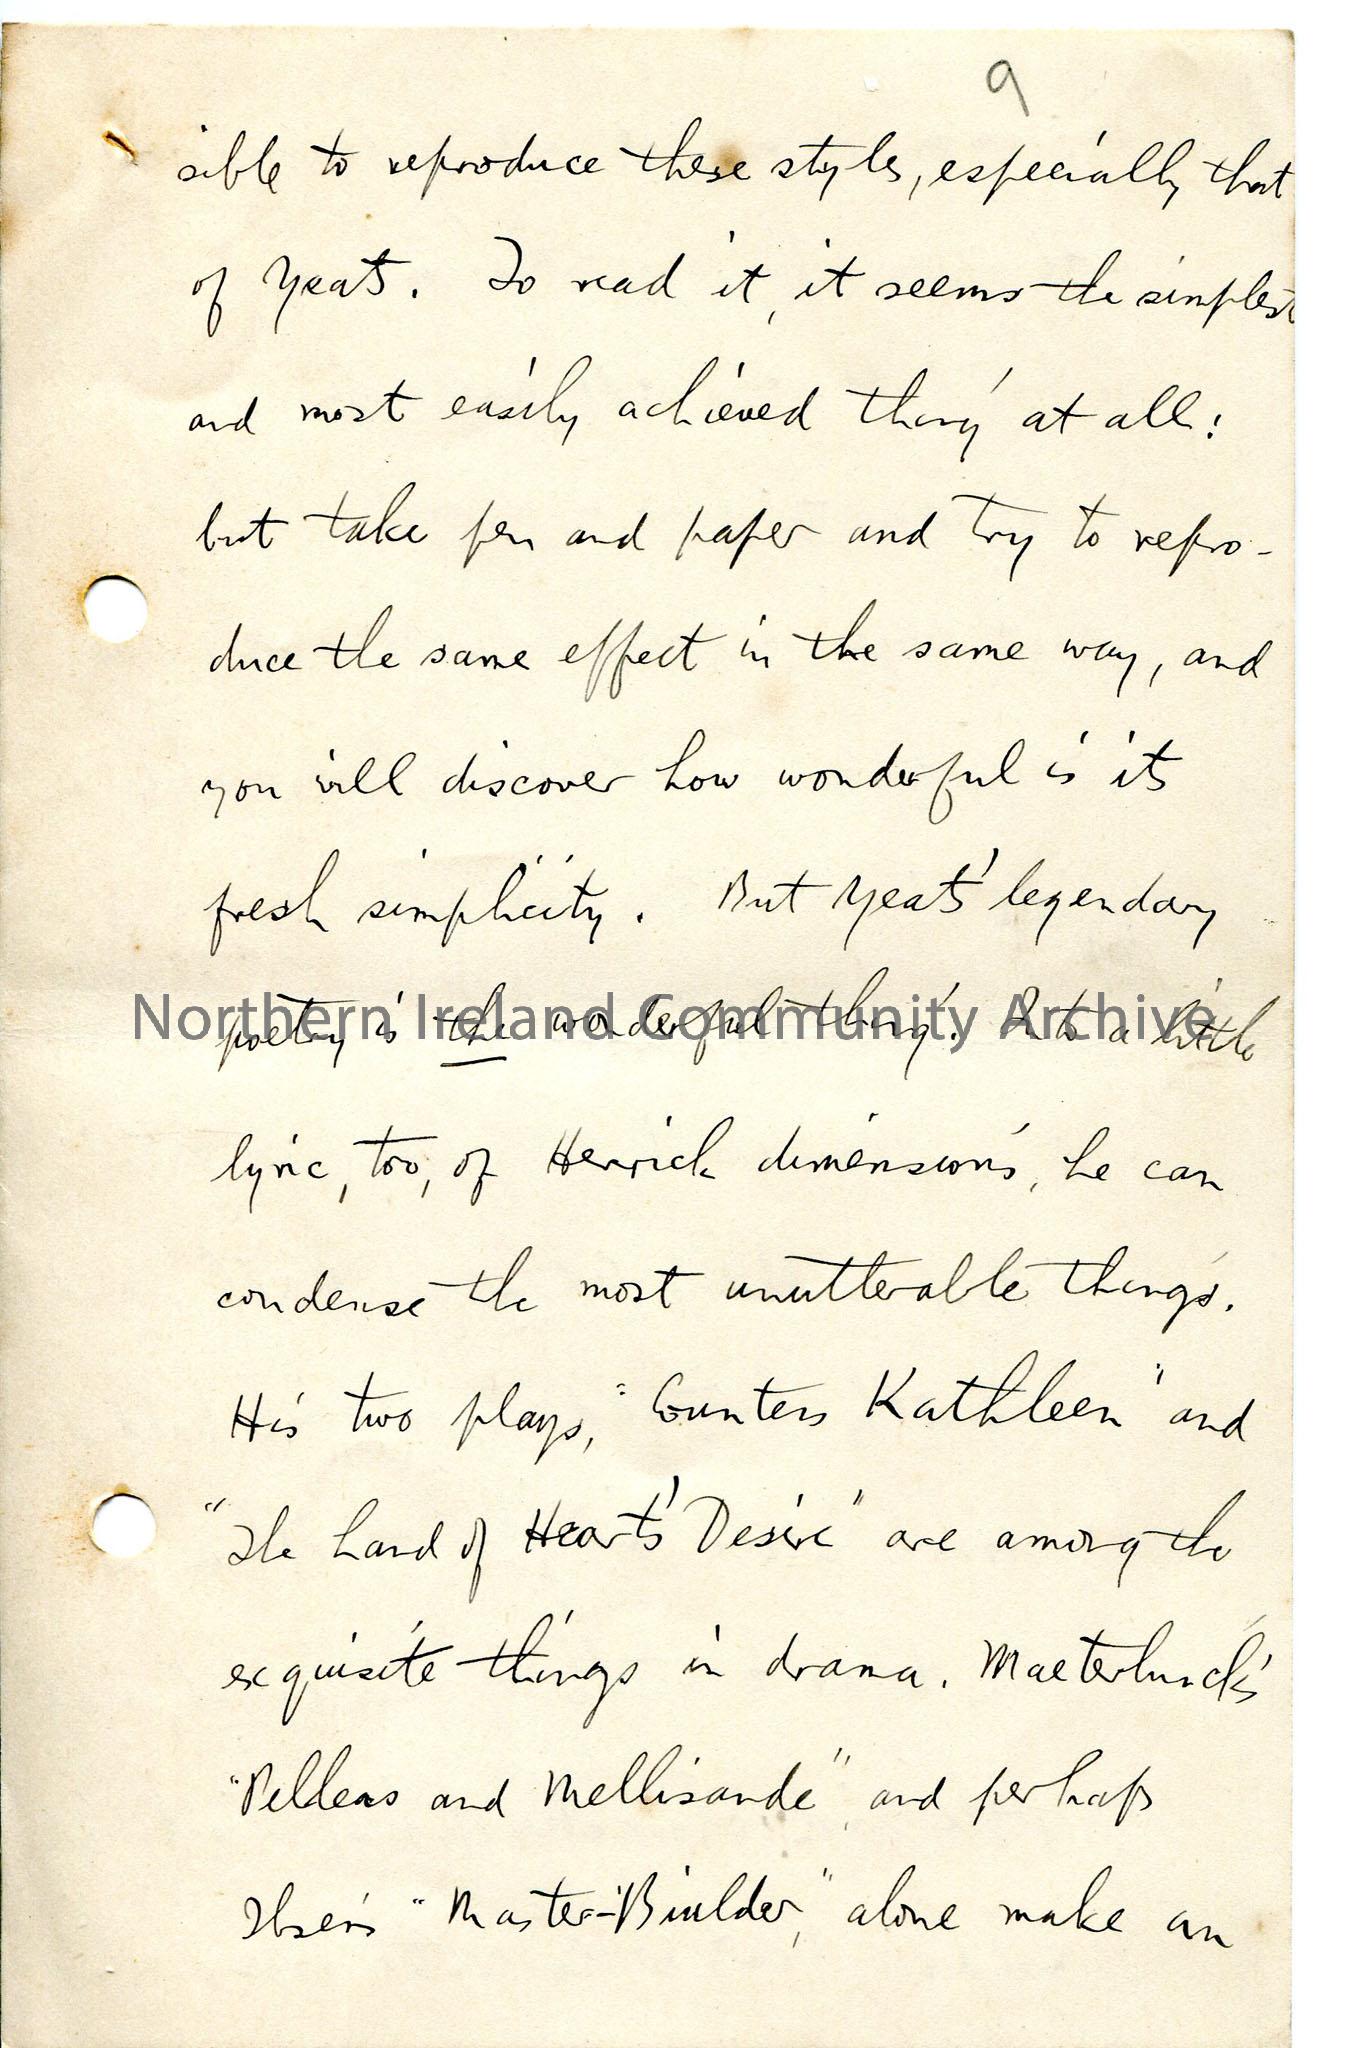 9
sible to reproduce these styles, especially that
of Yeats. To read it, it seems the simplest
and most easily achieved thing at all:
but take pen and paper and try to repro-
duce the same effect in the same way, and
you will discover how wonderful is its
fresh simplicity. But Yeats' legendary
poetry is the wonderful thing. Into a little
Northern Ireland Community Archive
lyric, too, of Herrick dimensions, he can
condense the most unutterable things.
His two plays, "Countess Kathleen" and
"The Land of Heart's Desire" are among the
exquisite things in drama. Maeterlinck's
"Pelleas and Mellisande", and perhaps
Ibsen's "Master-Builder," alone make an